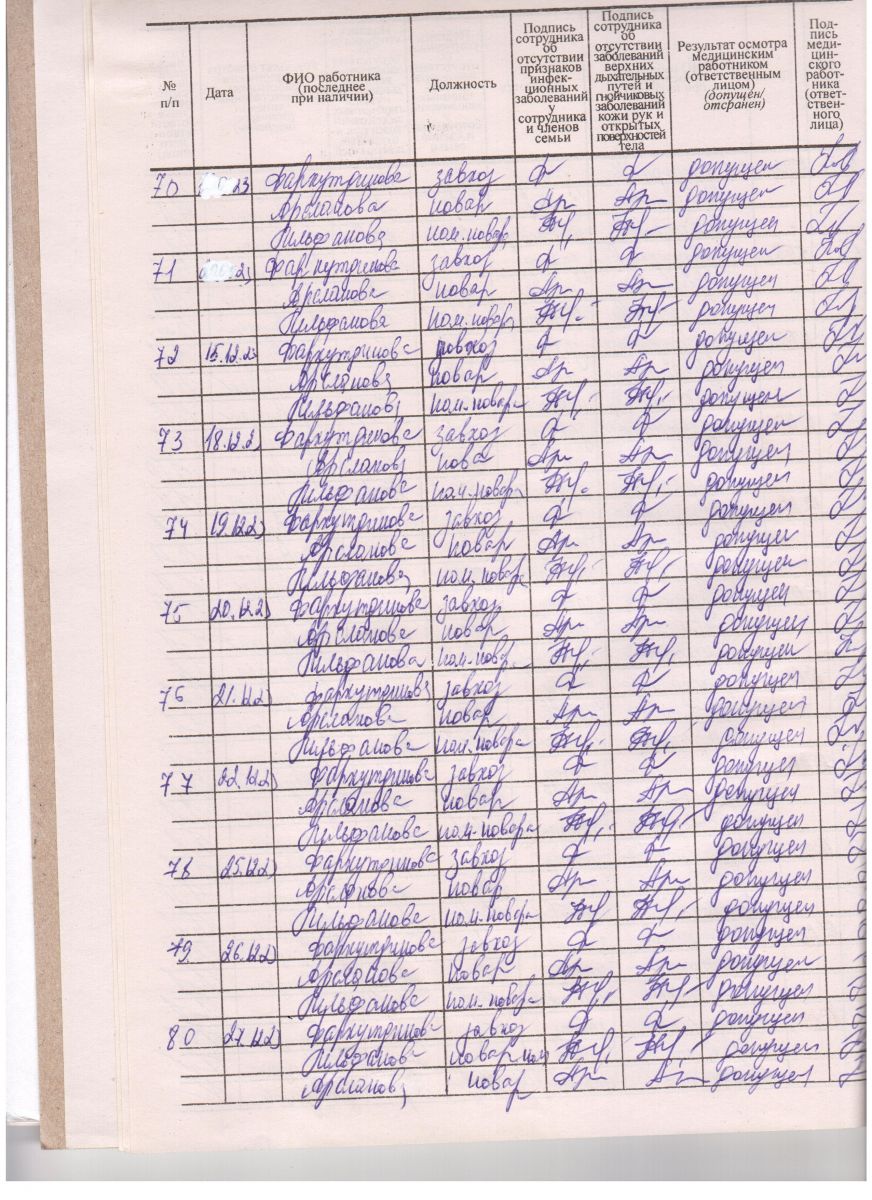 № п/п Дата ФИО работника (последнее при наличии) Должность Подпись сотрудника об отсутствии признаков инфекционных заболеваний у сотрудника и членов семьи Подпись сотрудника об отсутствии заболеваний верхних дыхательных путей и гнойчиковых заболеваний кожи рук и открытых поверхностей тела Результат осмотра медицинским работником (ответственным лицом) (допущен/отсранен) Подпись медицинского работника (ответственного лица)
70 23 Фархутдинова завхоз допущен
Арсланова повар допущен
Гильфанова пом. повар допущен
71 Фархутдинова завхоз допущен
Арсланова повар допущен
Гильфанова пом. повар допущен
72 15.12.23 Фархутдинова завхоз допущен
Арсланова повар допущен
Гильфанова пом. повара допущен
73 18.12.2 Фархутдинова завхоз допущен
Арсланов повар допущен
Гильфанова пом. повара допущен
74 19.12.23 Фархутдинова завхоз допущен
Арсланова повар допущен
Гильфанова пом. повара допущен
75 20.12.23 Фархутдинова завхоз допущен
Арсланова повар допущен
Гильфанова пом. повар допущен
76 21.12.23 Фархутдинова завхоз допущен
Арсланова повар допущен
Гильфанова пом. повара допущен
77 22.12.23 Фархутдинова завхоз допущен
Арсланова повар допущен
Гильфанова пом. повара допущен
78 25.12.23 Фархутдинова завхоз допущен
Арсланова повар допущен
Гильфанова пом. повара допущен
79 26.12.23 Фархутдинова завхоз допущен
Арсланова повар допущен
Гильфанова пом. повара допущен
80 27.12.23 Фархутдинова завхоз допущен
Гильфанова повар пом допущен
Арсланова повар допущен